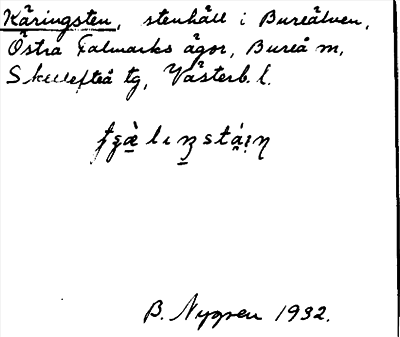 Käringsten, stenhäll i Bureälven,
Östra Falmarks ägor, Bureå sn,
Skellefteå tg, Västerb. l.
B. Nygren 1932.